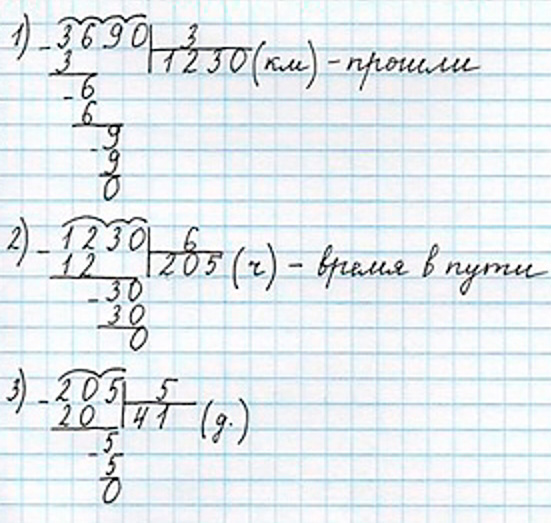 1) - 3690 | 3
3 1230 (км) - прошли
- 6
6
- 9
9
0
2) - 1230 | 6
12 205 (ч) - время в пути
- 30
30
0
3) - 205 | 5
20 41 (д.)
- 5
5
0